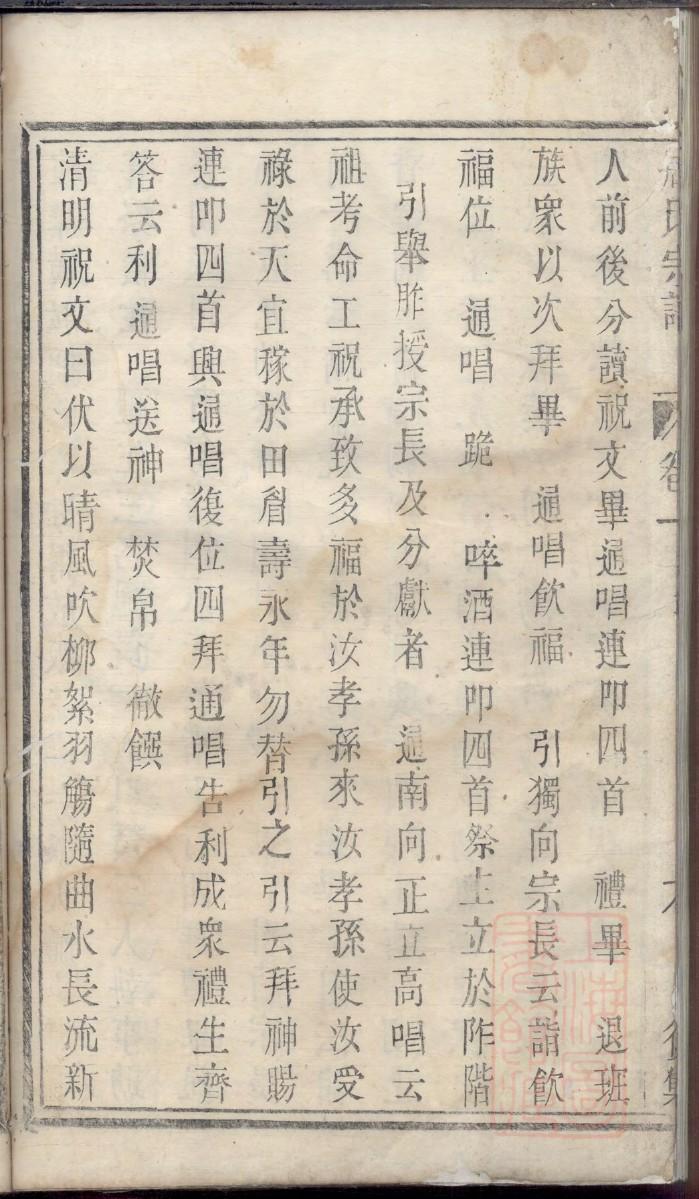 人前後分讀祝文畢通唱連叩四首 禮畢 退班
族衆以次拜畢 通唱飲福 引獨向宗長云詣飲
福位 通唱 跪 啐酒連叩四首祭主立於阼階
引舉胙授宗長及分獻者 通南向正立高唱云
祖考命工祝承致多福於汝孝孫來汝孝孫使汝受
祿於天宜稼於田眉壽永年勿替引之引云拜神賜
連叩四首興通唱復位四拜通唱告利成衆禮生齊
答云利通唱送神 焚帛 徹饌
清明祝文曰伏以晴風吹柳絮羽觴隨曲水長流新
氏宗譜 卷一